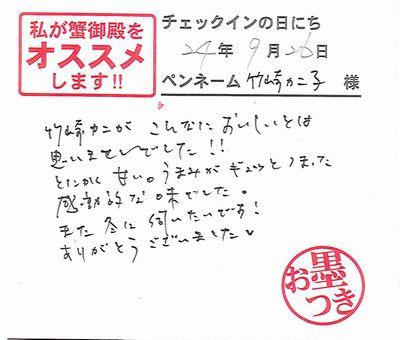 私が蟹御殿を
オススメ
します!!
チェックインの日にち
24年9月26日
ペンネーム 竹崎カニ子 様
竹崎カニが こんなに おいしいとは
思いませんでした!!
とにかく 甘い。うまみが ギュッと つまった
感動的な 味でした。
また 冬に 伺いたいです!
ありがとう ございました
お墨つき